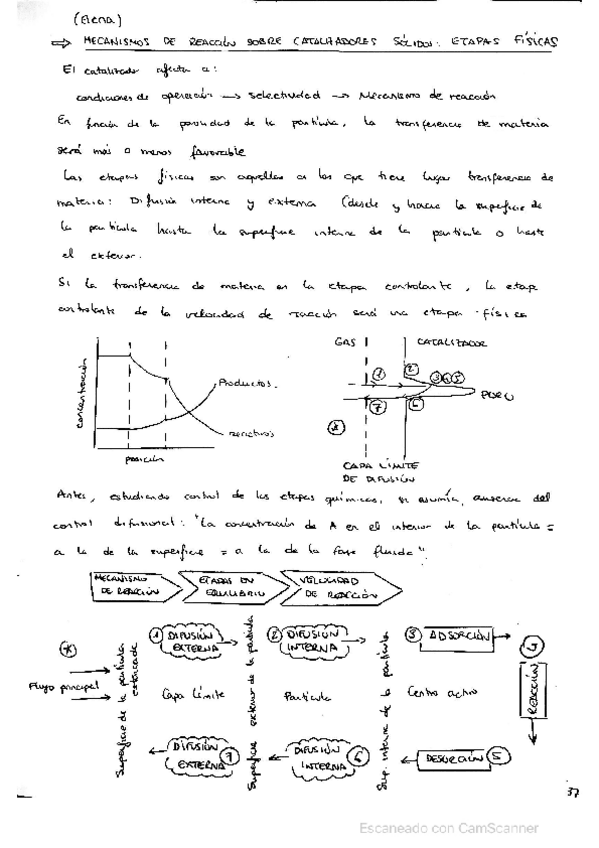 (Elena)
⇒ MECANISMOS DE REACCIÓN SOBRE CATALIZADORES SÓLIDOS: ETAPAS FÍSICAS
El catalizador afecta a:
condiciones de operación → selectividad → Mecanismo de reacción
En función de la porosidad de la partícula, la transferencia de materia
será más o menos favorable
Las etapas físicas son aquellas en las que tiene lugar transferencia de
materia: Difusión interna y externa (desde y hacia la superficie de
la partícula hasta la superficie interna de la partícula o hasta
el exterior.
Si la transferencia de materia es la etapa controlante, la etapa
controlante de la velocidad de reacción será una etapa física
concentración
Productos
reactivos
posición
GAS
CATALIZADOR
1
2
3 4 5
PORO
7
6
*
CAPA LÍMITE
DE DIFUSIÓN
Antes, estudiando control de las etapas químicas, se asumía ausencia del
control difusional: "La concentración de A en el interior de la partícula =
a la de la superficie = a la de la fase fluida".
MECANISMO
DE REACCIÓN
ETAPAS EN
EQUILIBRIO
VELOCIDAD
DE REACCIÓN
*
Flujo principal
Superficie de la partícula
1 DIFUSIÓN
EXTERNA
Capa Límite
DIFUSIÓN
EXTERNA 7
Superficie exterior de la partícula
2 DIFUSIÓN
INTERNA
Partícula
DIFUSIÓN
INTERNA 6
Sup. interna de la partícula
3 ADSORCIÓN
Centro activo
DESORCIÓN 5
4
REACCIÓN
37
Escaneado con CamScanner